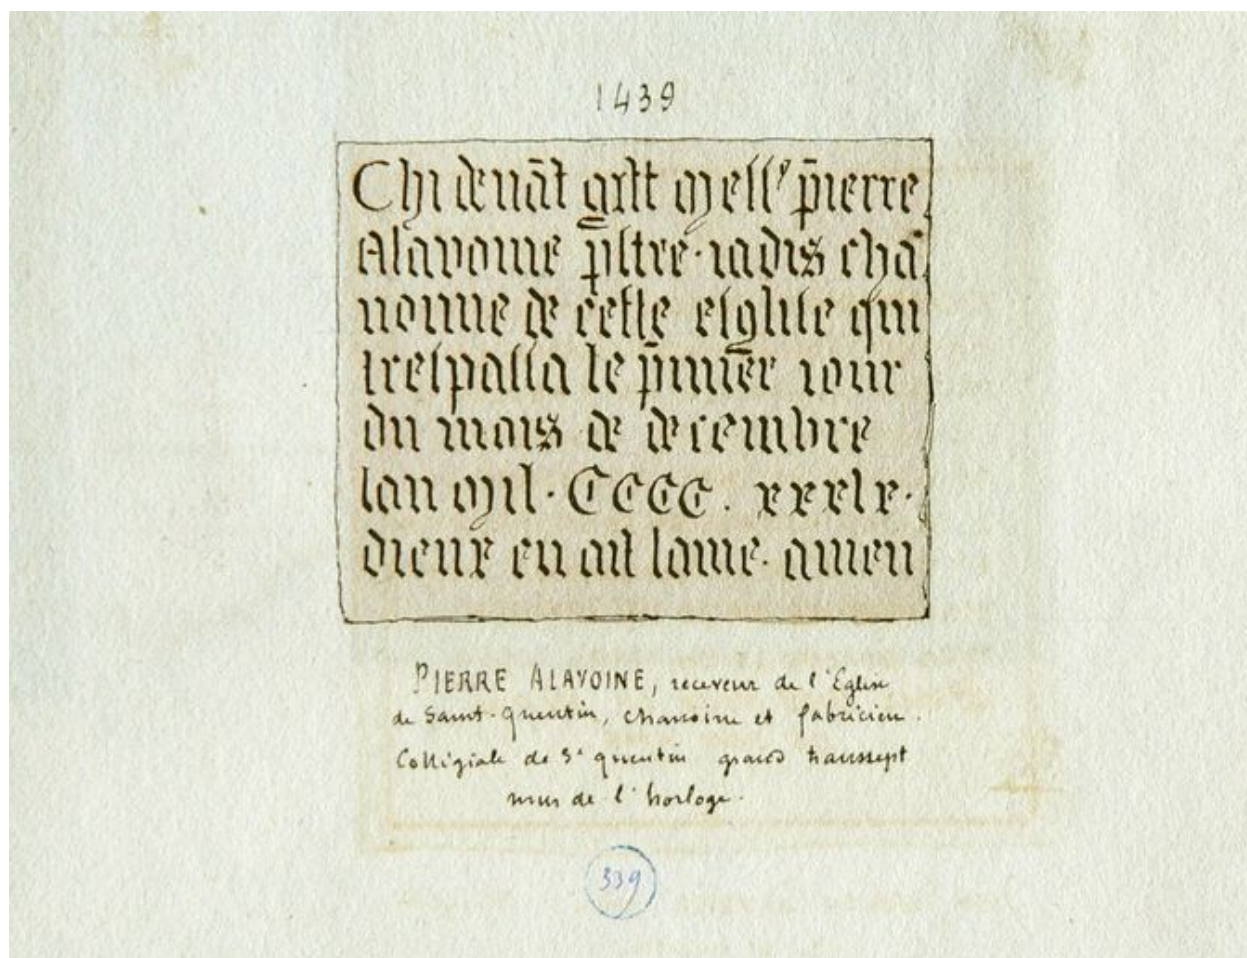 1439
Chi devāt gist mess' p̄ierre
Alavoine p̄stre · iadis cha
nonne de ceste esglise qui
trespassa le p̄mier iour
du mois de decembre
lan mil · CCCC . xxxix ·
dieux en ait lame · amen
PIERRE ALAVOINE, receveur de l'Eglise
de Saint-Quentin, chanoine et fabricien.
Collégiale de St quentin grand transsept
mur de l'horloge.
339